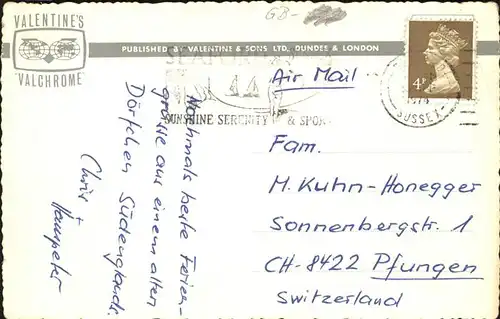 GB-
VALENTINE'S
"VALCHROME"
PUBLISHED BY VALENTINE & SONS LTD., DUNDEE & LONDON
SUNSHINE SERENITY & SPORT
4P
SUSSEX
Air Mail
Nochmals beste Ferien-
grüsse aus einem alten
Dörfchen Südenglands.
Chris +
Hanspeter
Fam.
M. Kuhn-Honegger
Sonnenbergstr. 1
CH-8422 Pfungen
Switzerland